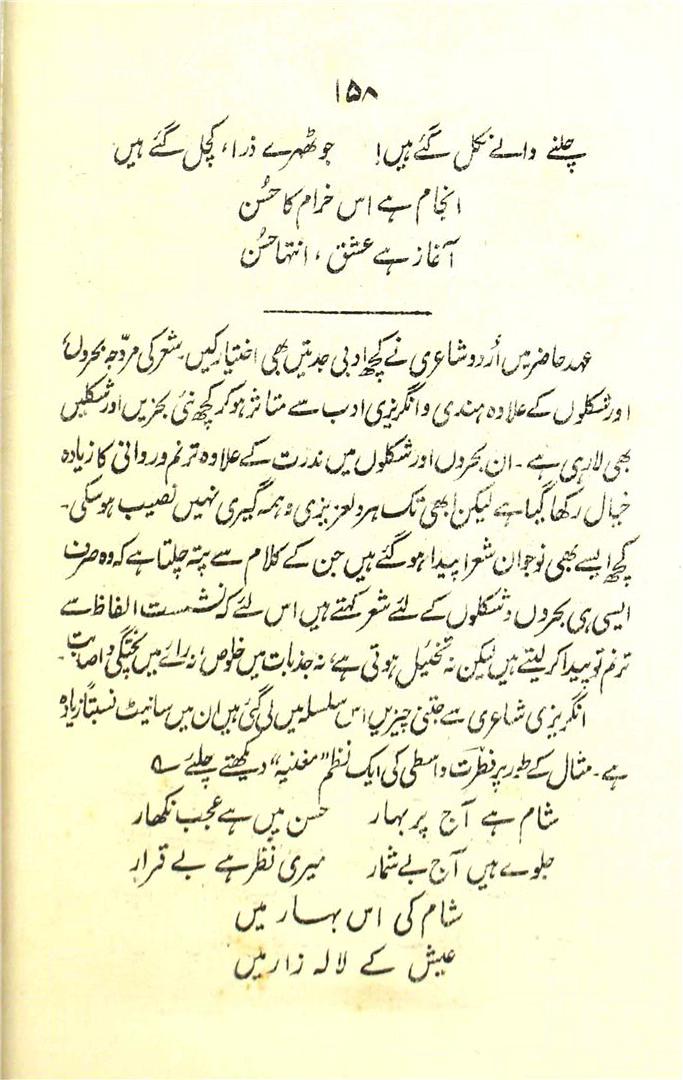 ۱۵۸
چلنے والے نکل گئے ہیں! جو ٹھہرے ذرا، کچل گئے ہیں
انجام ہے اس خرام کا حُسن
آغاز ہے عشق، انتہا حُسن
عہد حاضر میں اُردو شاعری نے کچھ ادبی جدتیں بھی اختیار کیں۔ شعر کی مروّجہ بحروں
اور شکلوں کے علاوہ ہندی و انگریزی ادب سے متاثر ہو کر کچھ نئی بحریں اور شکلیں
بھی لا رہی ہے۔ ان بحروں اور شکلوں میں ندرت کے علاوہ ترنم و روانی کا زیادہ
خیال رکھا گیا ہے لیکن ابھی تک ہردلعزیزی و ہمہ گیری نہیں نصیب ہو سکی۔
کچھ ایسے بھی نوجوان شعرا پیدا ہو گئے ہیں جن کے کلام سے پتہ چلتا ہے کہ وہ صرف
ایسی ہی بحروں و شکلوں کے لئے شعر کہتے ہیں اس لئے کہ نشست الفاظ سے
ترنم تو پیدا کر لیتے ہیں لیکن نہ تخئیل ہوتی ہے، نہ جذبات میں خلوص، نہ رائے میں پختگی و اصابت۔
انگریزی شاعری سے جتنی چیزیں اس سلسلہ میں لی گئی ہیں ان میں سانیٹ نسبتاً زیادہ
ہے۔ مثال کے طور پر فطرت واسطی کی ایک نظم "مغنیہ" دیکھتے چلئے ؎
شام ہے آج پر بہار حسن میں ہے عجب نکھار
جلوے ہیں آج بے شمار میری نظر ہے بے قرار
شام کی اس بہار میں
عیش کے لالہ زار میں